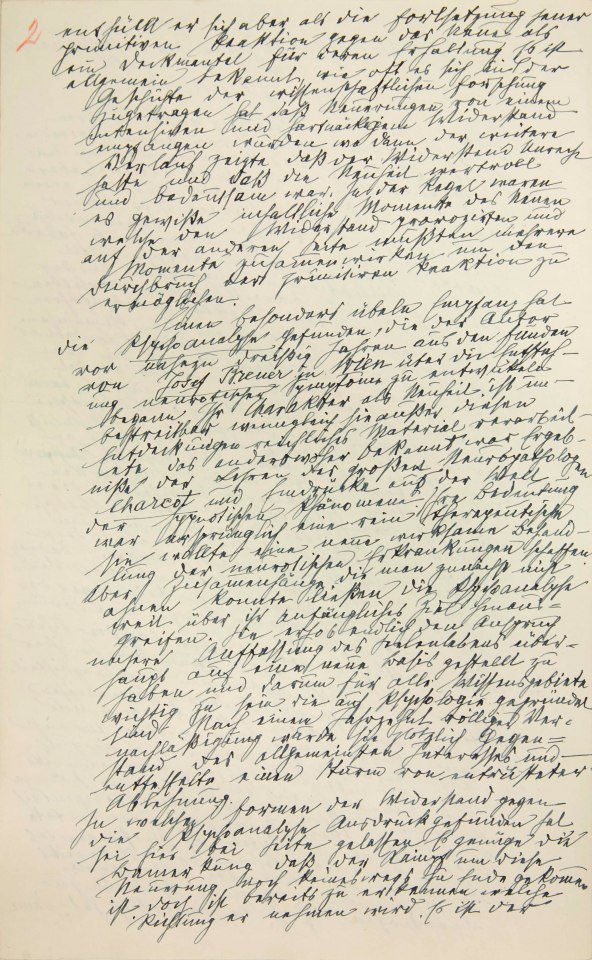 2
enthüllt er sich aber als die Fortsetzung jener
primitiven Reaktion gegen das Neue als
ein Deckmantel für deren Erhaltung Es ist
allgemein bekannt, wie oft es sich in der
Geschichte der wissenschaftlichen Forschung
zugetragen hat daß Neuerungen von einem
intensiven und hartnäckigem Widerstand
empfangen wurden wo dann der weitere
Verlauf zeigte daß der Widerstand Unrecht
hatte und daß die Neuheit wertvoll
und bedeutsam war. In der Regel waren
es gewiße inhaltliche Momente des Neuen
welche den Widerstand provozirten und
auf der anderen Seite mußten mehrere
Momente zusammenwirken um den
Durchbruch der primitiven Reaktion zu
ermöglichen.
Einen besonders übeln Empfang hat
die Psychoanalyse gefunden, die der Autor
vor nahezu dreißig Jahren aus den Funden
von Josef Breuer in Wien über die Entsteh-
ung neurotischer Symptome zu entwickeln
begann. Ihr Charakter als Neuheit ist un-
bestreitbar wenngleich sie außer diesen
Entdeckungen reichliches Material verarbeit-
tete das anderswoher bekannt war Ergeb-
niße der Lehren des großen Neuropathologen
Charcot und Eindrücke aus der Welt
der hypnotischen Phänomene Ihre Bedeutung
war ursprünglich eine rein therapeutische
sie wollte eine neue wirksame Behand-
lung der neurotischen Erkrankungen schaffen.
Aber Zusammenhänge die man zunächst nicht
ahnen konnte ließen die Psychoanalyse
weit über ihr anfängliches Ziel hinaus-
greifen. Sie erhob endlich den Anspruch
unsere Auffassung des Seelenlebens über-
haupt auf eine neue Basis gestellt zu
haben und darum für alle Wissensgebiete
wichtig zu sein die auf Psychologie gegründet
sind Nach einem Jahrzehnt völliger Ver-
nachläßigung wurde sie plötzlich Gegen-
stand des allgemeinsten Interesses und
entfesselte einen Sturm von entrüsteter
Ablehnung.
In welchen Formen der Widerstand gegen
die Psychoanalyse Ausdruck gefunden hat
sei hier bei Seite gelassen Es genüge die
Bemerkung daß der Kampf um diese
Neuerung noch keineswegs zu Ende gekommen
ist doch ist bereits zu erkennen welche
Richtung er nehmen wird. Es ist der